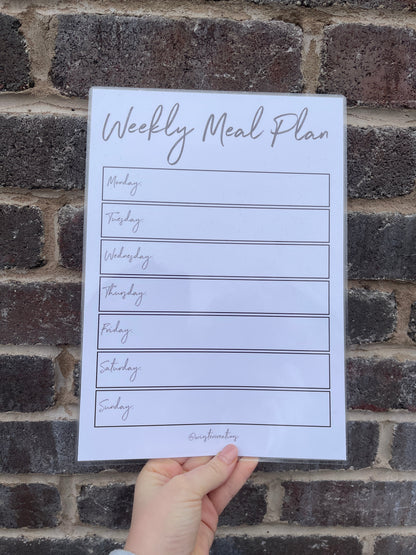 Weekly Meal Plan
Monday:
Tuesday:
Wednesday:
Thursday:
Friday:
Saturday:
Sunday: